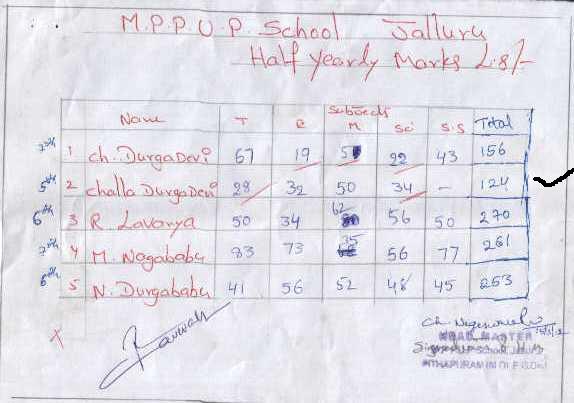 M.P.P.U.P. School Jalluru
Half Yearly Marks List
Subjects
Name T E M Sci S.S Total
7th 1 Ch. DurgaDevi 67 19 5 22 43 156
5th 2 Challa DurgaDevi 28 32 50 34 - 124
6th 3 R. Lavanya 50 34 62 56 50 270
7th 4 M. Nagababu 83 73 35 56 77 261
6th 5 N. Durgababu 41 56 52 48 45 253
HEAD MASTER